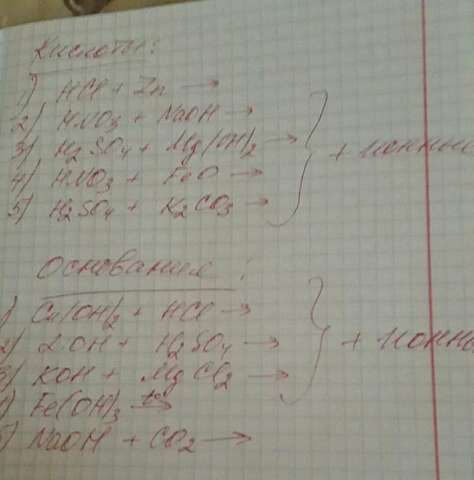 Кислоты:
1) HCl + Zn →
2) HNO3 + NaOH →
3) H2SO4 + Mg(OH)2 →
4) HNO3 + FeO →
5) H2SO4 + K2CO3 →
+ ионный
Основания:
1) Cu(OH)2 + HCl →
2) LiOH + H2SO4 →
3) KOH + MgCl2 →
4) Fe(OH)3 t° →
5) NaOH + CO2 →
+ ионны